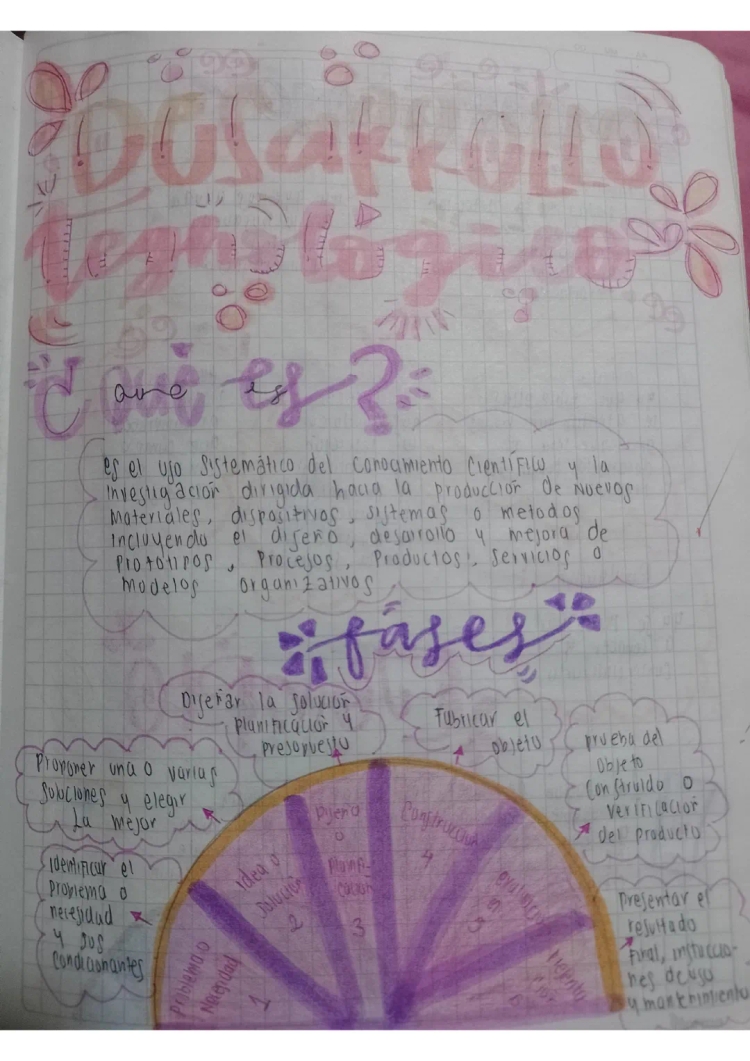 Desarrollo
Tegnológico
¿Que es?
que es
es el uso sistemático del conocimiento científico y la
investigación dirigida hacia la producción de nuevos
materiales, dispositivos, sistemas o metodos
incluyendo el diseño, desarrollo y mejora de
prototipos, procesos, productos, servicios o
modelos organizativos
fases
Diseñar la solución
planificación y
presopuesto
Fabricar el
objeto
prueba del
objeto
construido o
verificación
del producto
Proponer una o varias
soluciones y elegir
La mejor
Identificar el
problema o
necesidad
y sus
condicionantes
Presentar el
resultado
Final, instruccio-
nes de uso
y mantenimiento
problema o
necesidad
1
idea o
solución
2
Diseño
o
planifi-
cación
3
Construcción
4
5
6